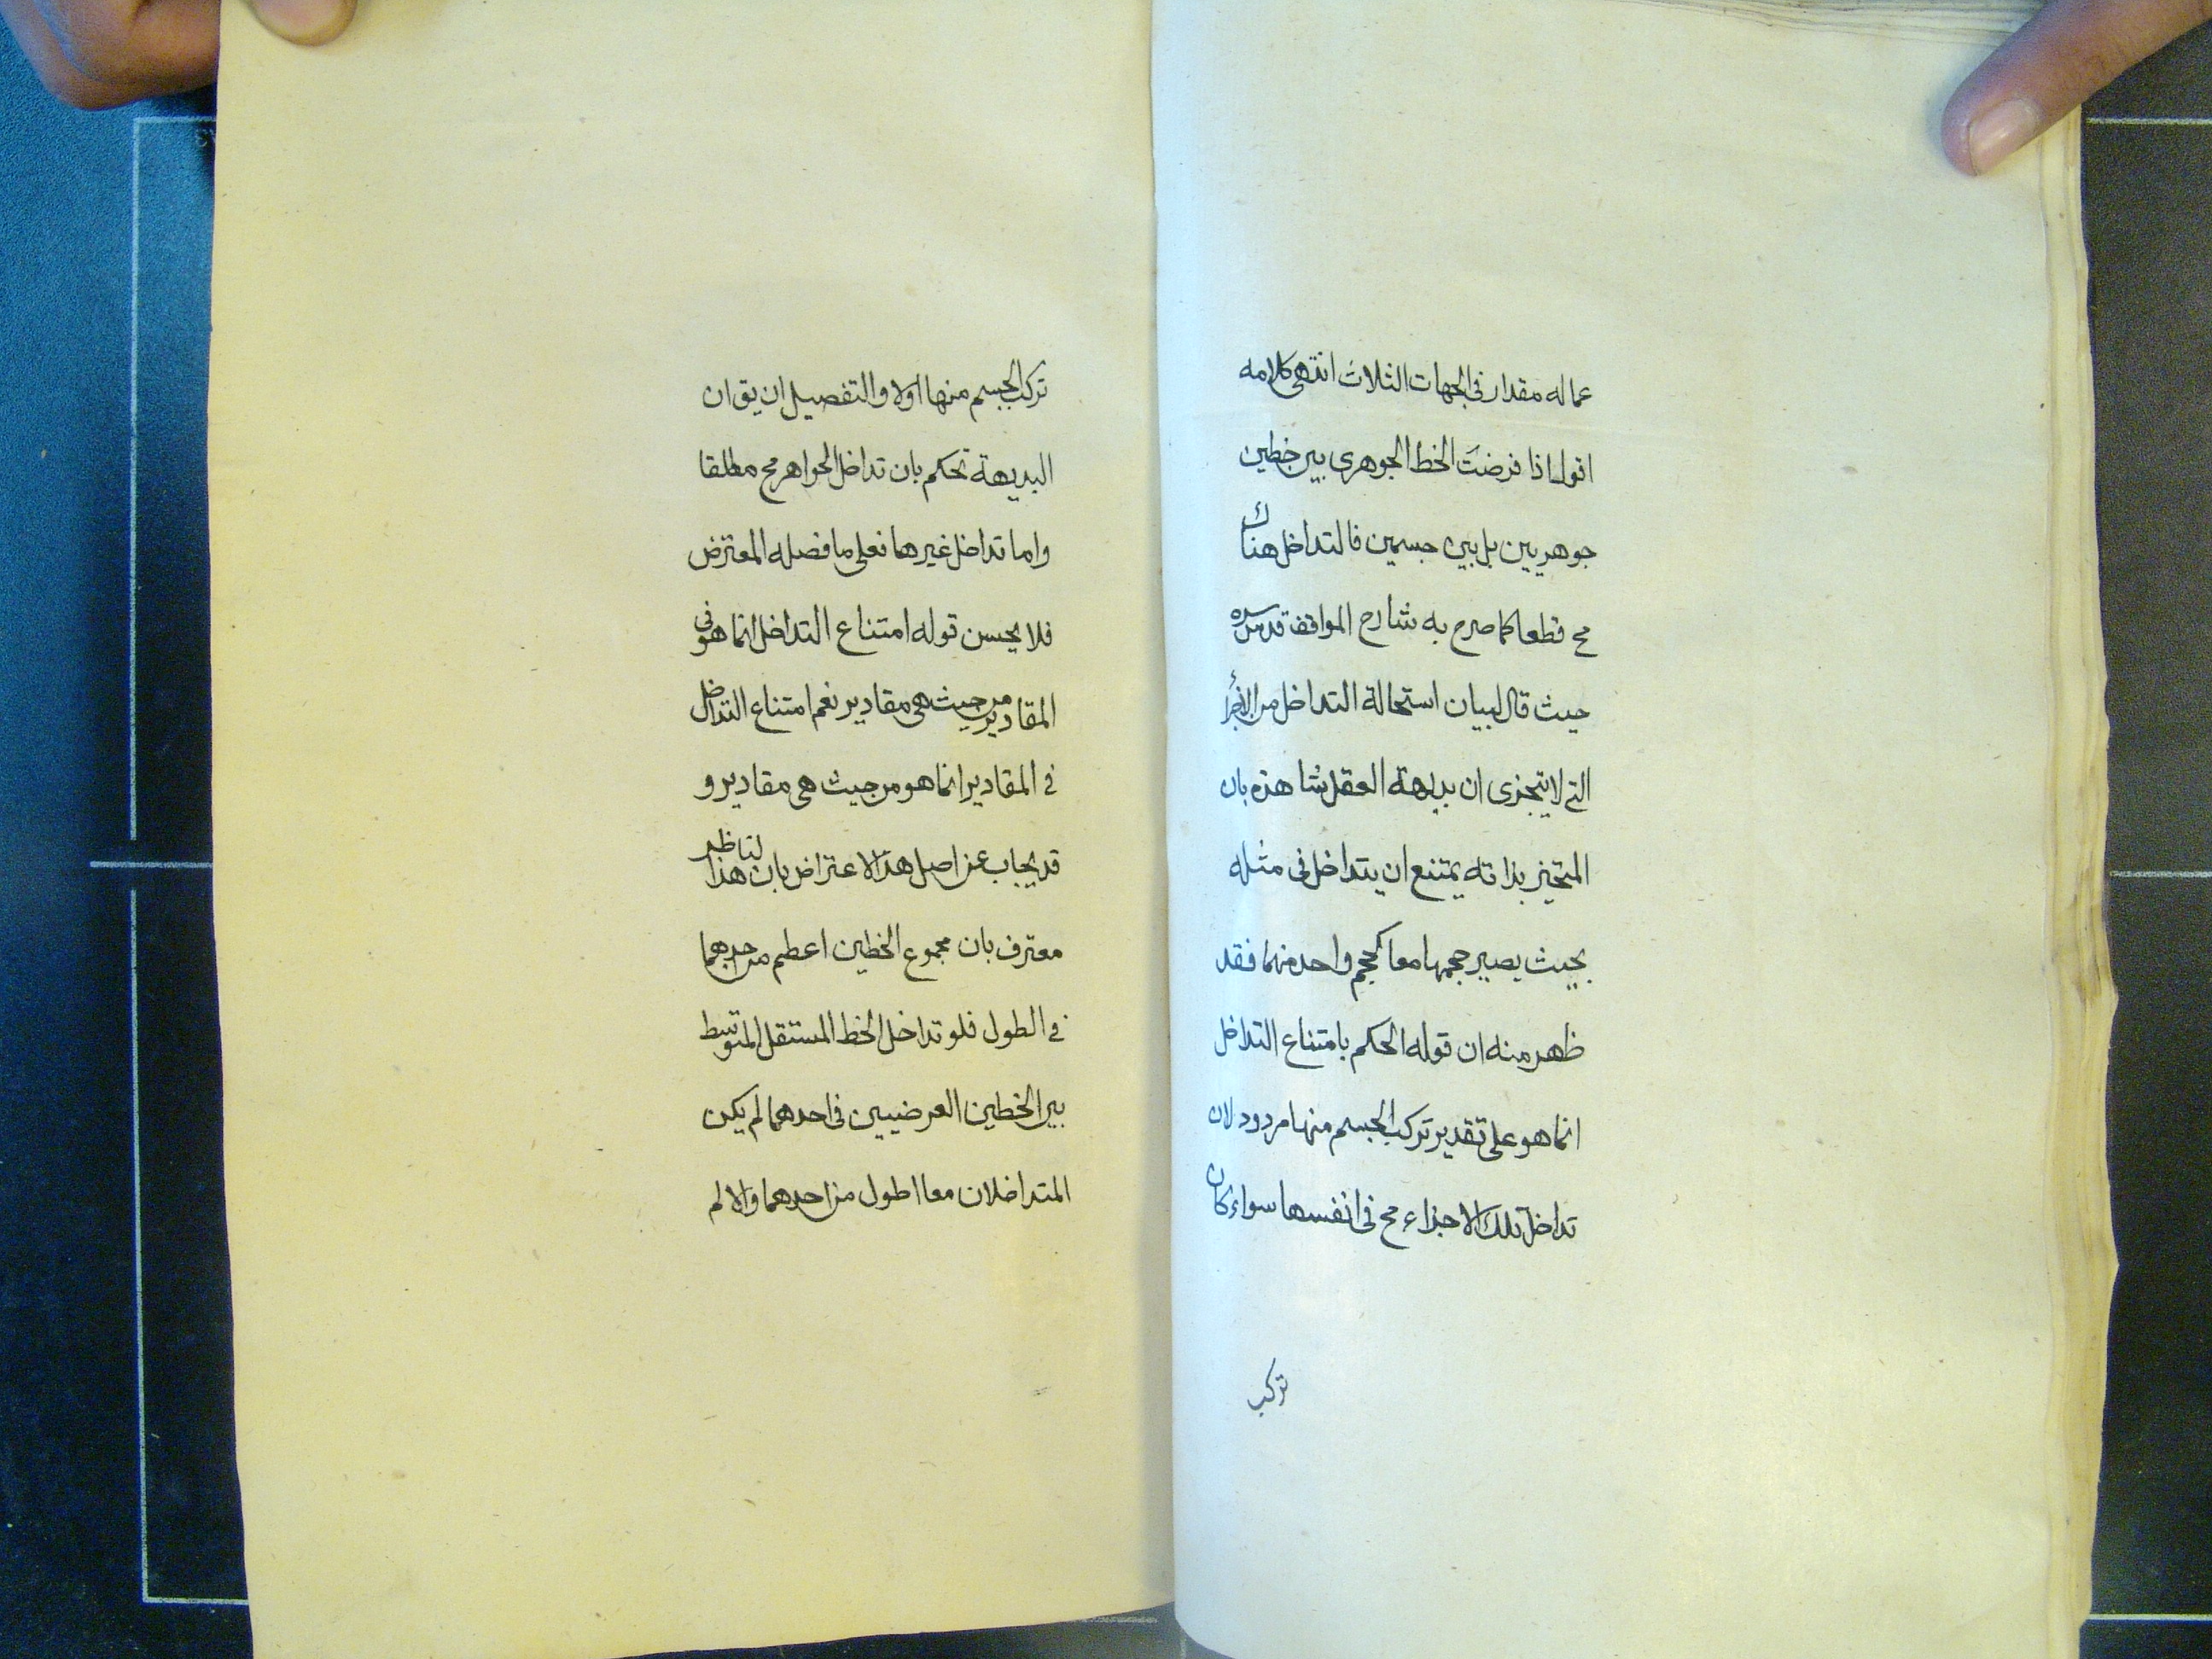 عما له مقدار فى الجهات الثلاث انتهى كلامه
اقول اذا فرضت الخط الجوهرى بين خطين
جوهريين بل بين جسمين فالتداخل هناك
مح قطعا كما صرح به شارح المواقف قدس سره
حيث قال لبيان استحالة التداخل من الاجزأ
التى لا يتجزى ان بديهة العقل شاهدة بان
المتحيز بذاته يمتنع ان يتداخل فى مثله
بحيث يصير حجمها معا كحجم واحد منهما فقد
ظهر منه ان قوله الحكم بامتناع التداخل
انما هو على تقدير تركب الجسم منها مردود لان
تداخل تلك الاجزاء مح فى انفسها سواء كان
تركب
تركب الجسم منها اولا والتفصيل ان يق ان
البديهة تحكم بان تداخل الجواهر مح مطلقا
واما تداخل غيرها فعلى ما فصله المعترض
فلا يحسن قوله امتناع التداخل انما هو فى
المقادير من حيث هى مقادير نعم امتناع التداخل
فى المقادير انما هو من حيث هى مقادير و
قد يجاب عن اصل هذا الاعتراض بان هذا لناظر
معترف بان مجموع الخطين اعطم من احدهما
فى الطول فلو تداخل الخط المستقل المتوسط
بين الخطين العرضيين فى احدهما لم يكن
المتداخلان معا اطول من احدهما والا لم